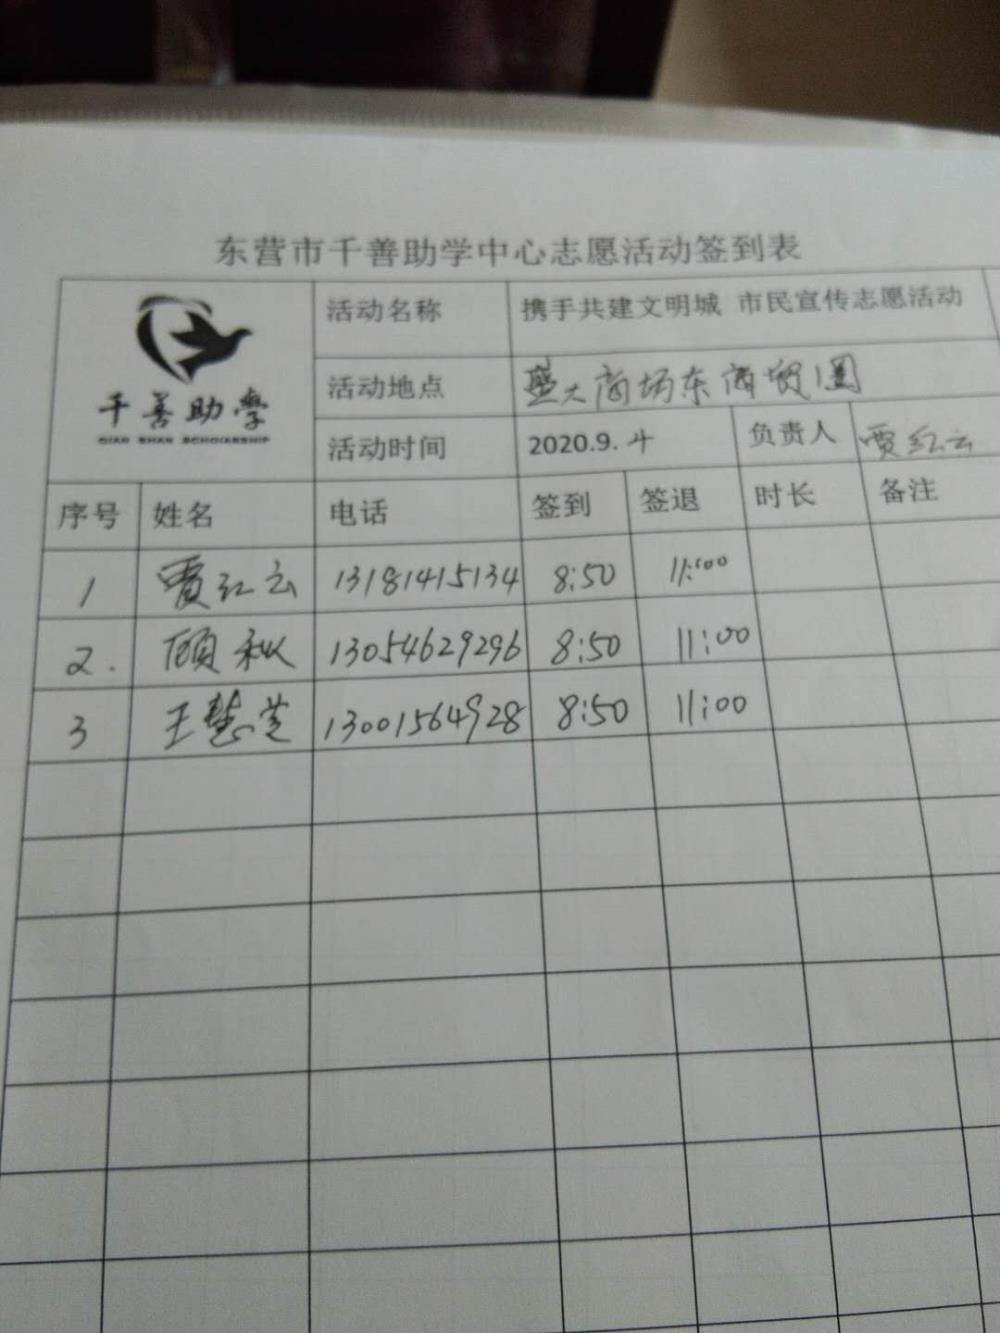 东营市千善助学中心志愿活动签到表
千善助學
QIAN SHAN SCHOLARSHIP
活动名称 携手共建文明城 市民宣传志愿活动
活动地点 盛大商场东商贸圈
活动时间 2020.9.4 负责人 贾红云
序号 姓名 电话 签到 签退 时长 备注
1 贾红云 13181415134 8:50 11:00
2. 顾秋 13054629296 8:50 11:00
3 王慧芝 13001564928 8:50 11:00